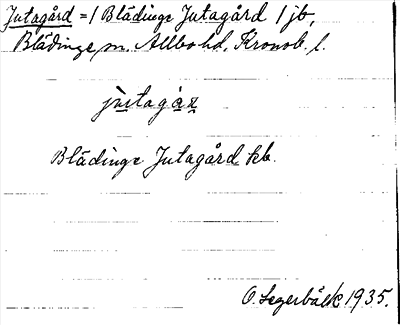 Jutagård = / Blädinge Jutagård / jb,
Blädinge, m. Allbo hd, Kronob. l.
jùtagáṛ
Blädinge Jutagård kb.
O. Segerbäck 1935.